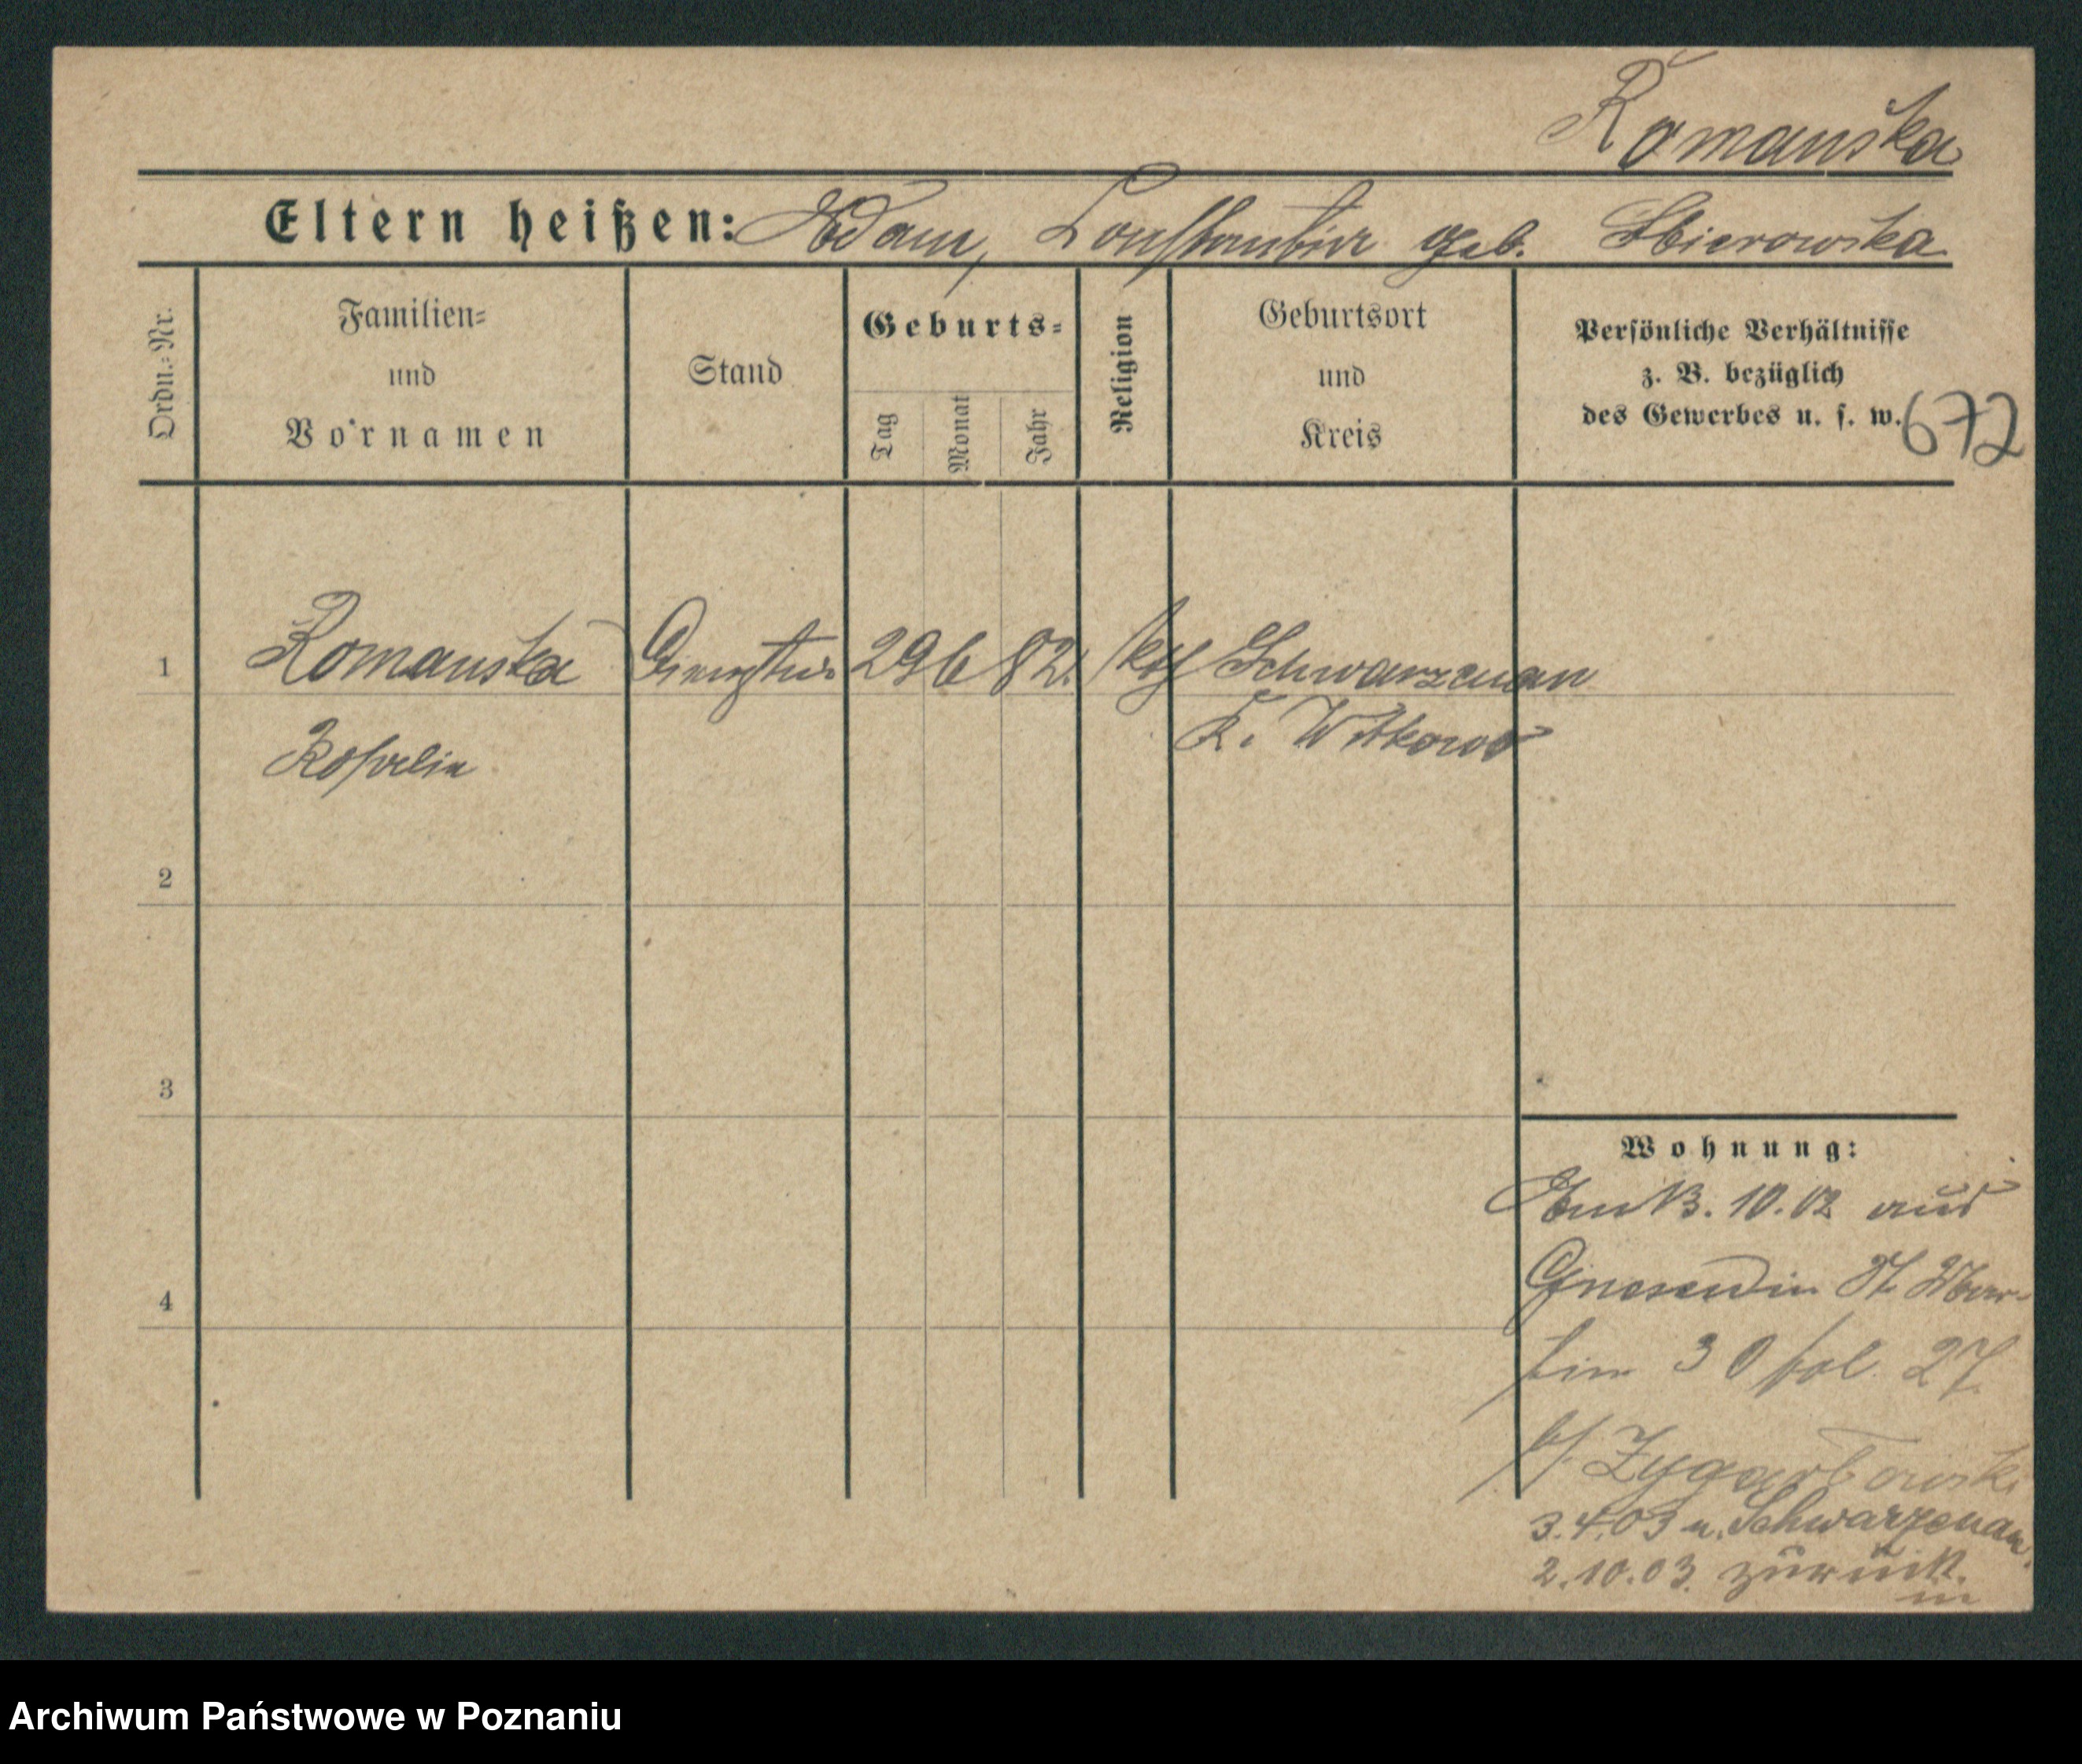 Romańska
Eltern heißen: Adam, Constantia geb. Zbierowska
Ordn.=Nr.
Familien=
und
Vornamen
Stand
Geburts=
Tag
Monat
Jahr
Religion
Geburtsort
und
Kreis
Persönliche Verhältnisse
z. B. bezüglich
des Gewerbes u. s. w.
672
1 Romańska 29 6 82. kth Schwarzenau
K. Witkowo
2
3
4
Wohnung:
Am 13. 10. 02 aus
Gnesen in St. Mar-
tin 30 fol. 27
b/
3.4.03 n. Schwarzenau.
2.10.03. zurück.
in
Archiwum Państwowe w Poznaniu